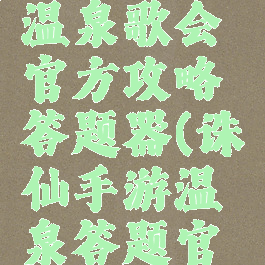 温泉歌会
官方攻略
答题器(诛
仙手游温
泉答题官